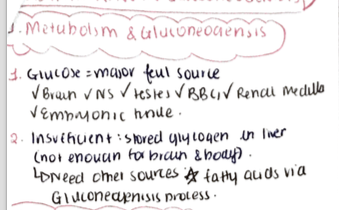 1. Metabolism & Gluconeogensis
1. Glucose = major feul source
✓Brain ✓NS ✓testes ✓RBC,✓ Renal Medulla
✓Embryonic
2. Insufficient : stored glycogen in liver
(not enough for brain & body).
↳Need other sources ☆ fatty acids via
Gluconeogenisis process.